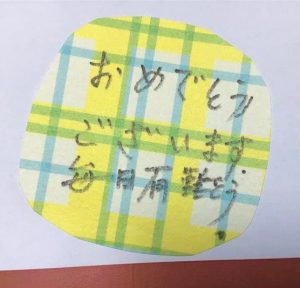 おめでとう
ございます
毎日有難とう!